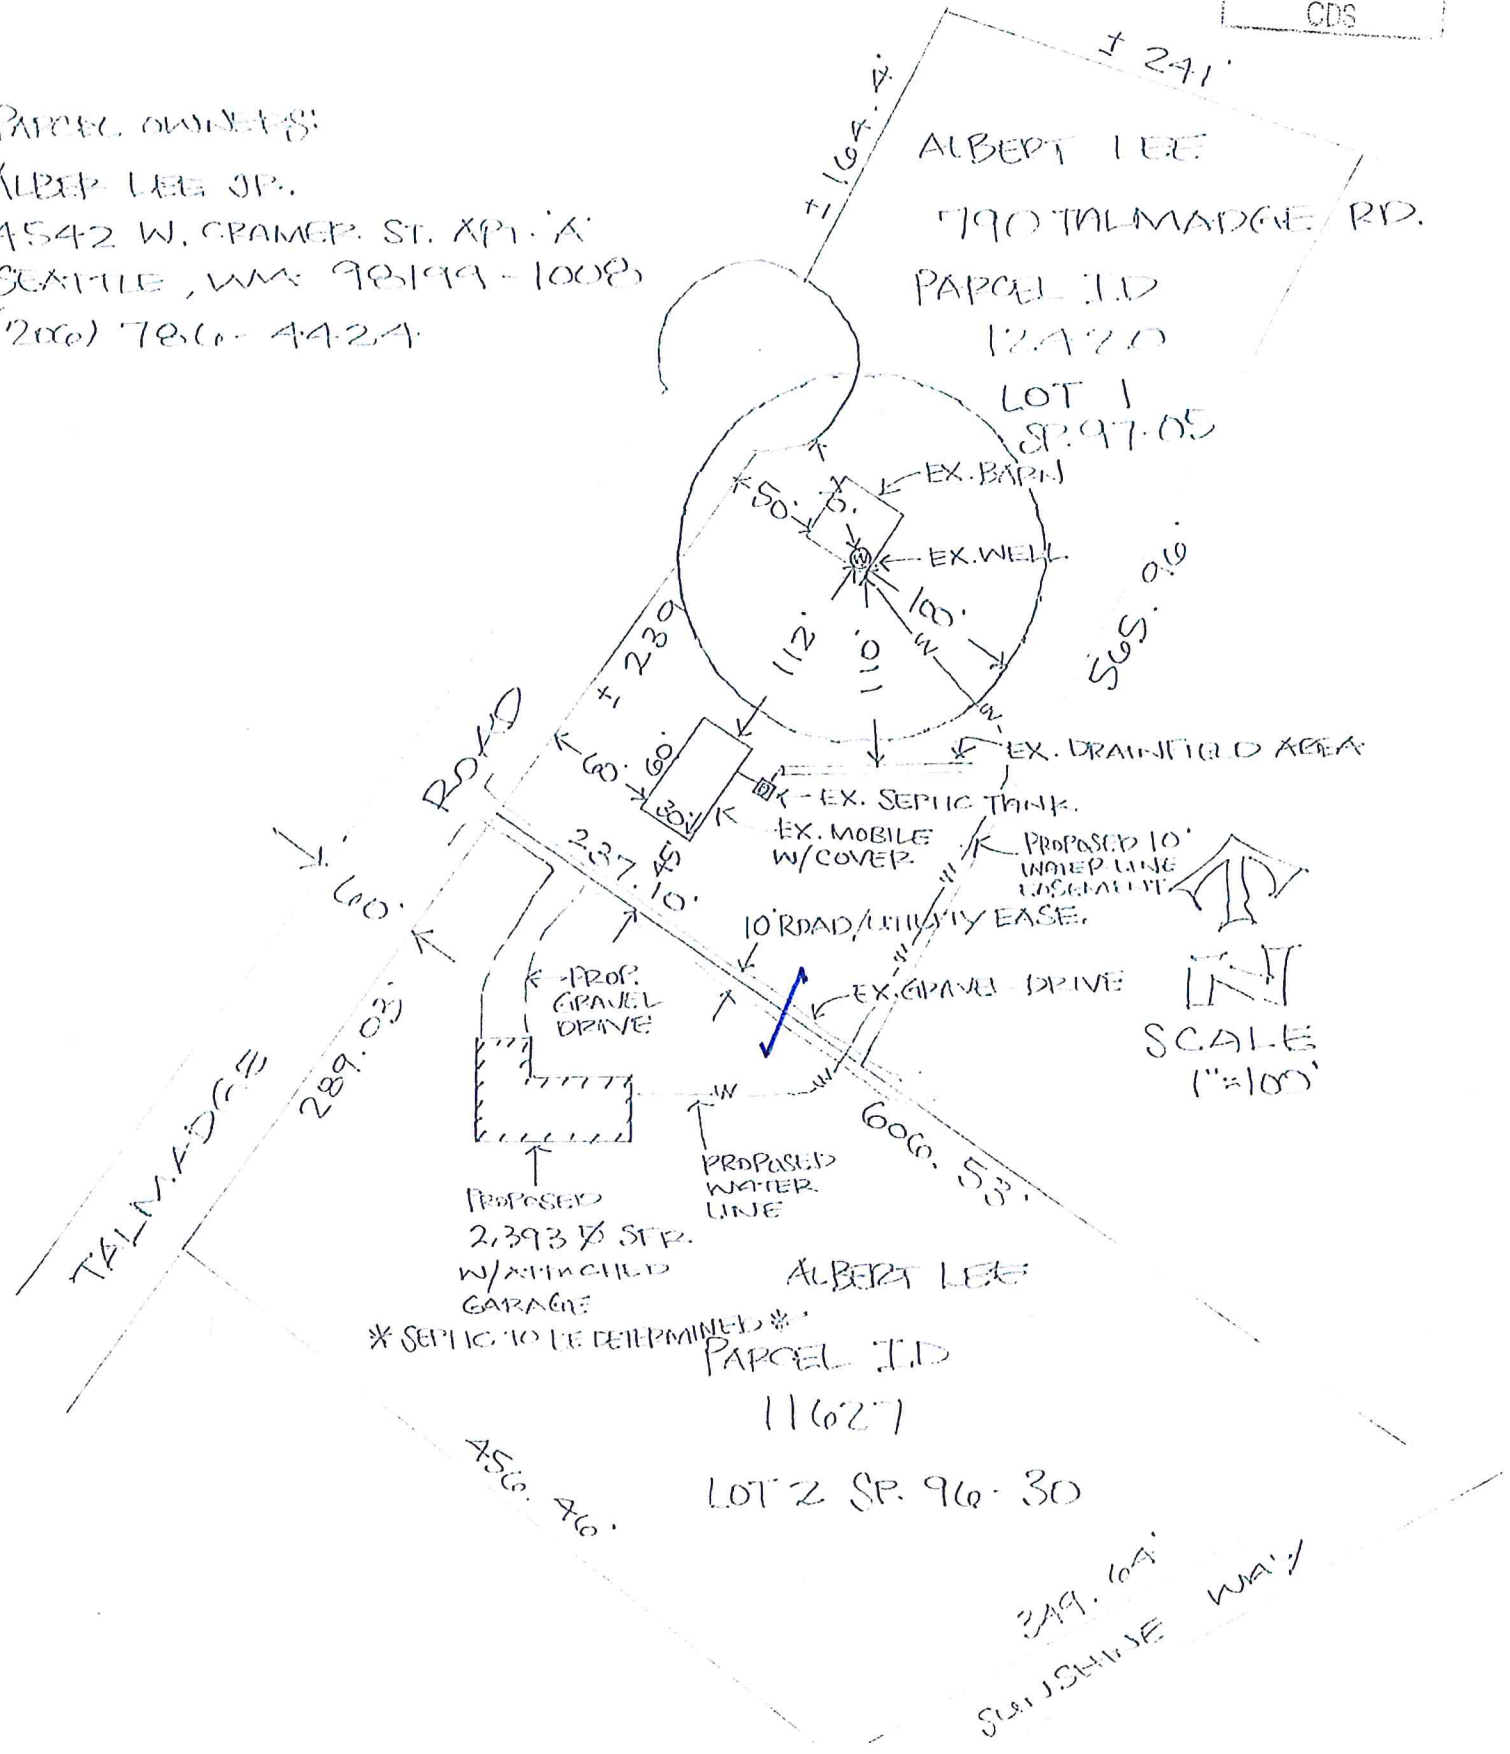 CDS
± 241'
PARCEL OWNERS:
ALBER LEE JR.
4542 W. CRAMER ST. APT. 'A'
SEATTLE, WA 98199-1008
(206) 786-4424
± 164.4'
ALBERT LEE
790 TALMADGE RD.
PARCEL I.D
12420
LOT 1
SP. 97-05
EX. BARN
50'
EX. WELL
W
W
W
565.96'
112'
110'
± 239
ROAD
60'
60'
30'
45'
EX. DRAINFIELD AREA
EX. SEPTIC TANK.
EX. MOBILE
W/COVER
PROPOSED 10'
WATER LINE
EASEMENT
237.10'
60'
10' ROAD/UTILITY EASE.
W
W
EX. GRAVEL DRIVE
PROP.
GRAVEL
DRIVE
N
SCALE
1"=100'
289.03'
TALMADGE
W
W
606.53'
PROPOSED
WATER
LINE
PROPOSED
2,393 SFR.
W/ATTACHED
GARAGE
*SEPTIC TO BE DETERMINED*
ALBERT LEE
PARCEL I.D
11627
LOT 2 SP. 96-30
456.46'
349.64'
SUNSHINE WAY